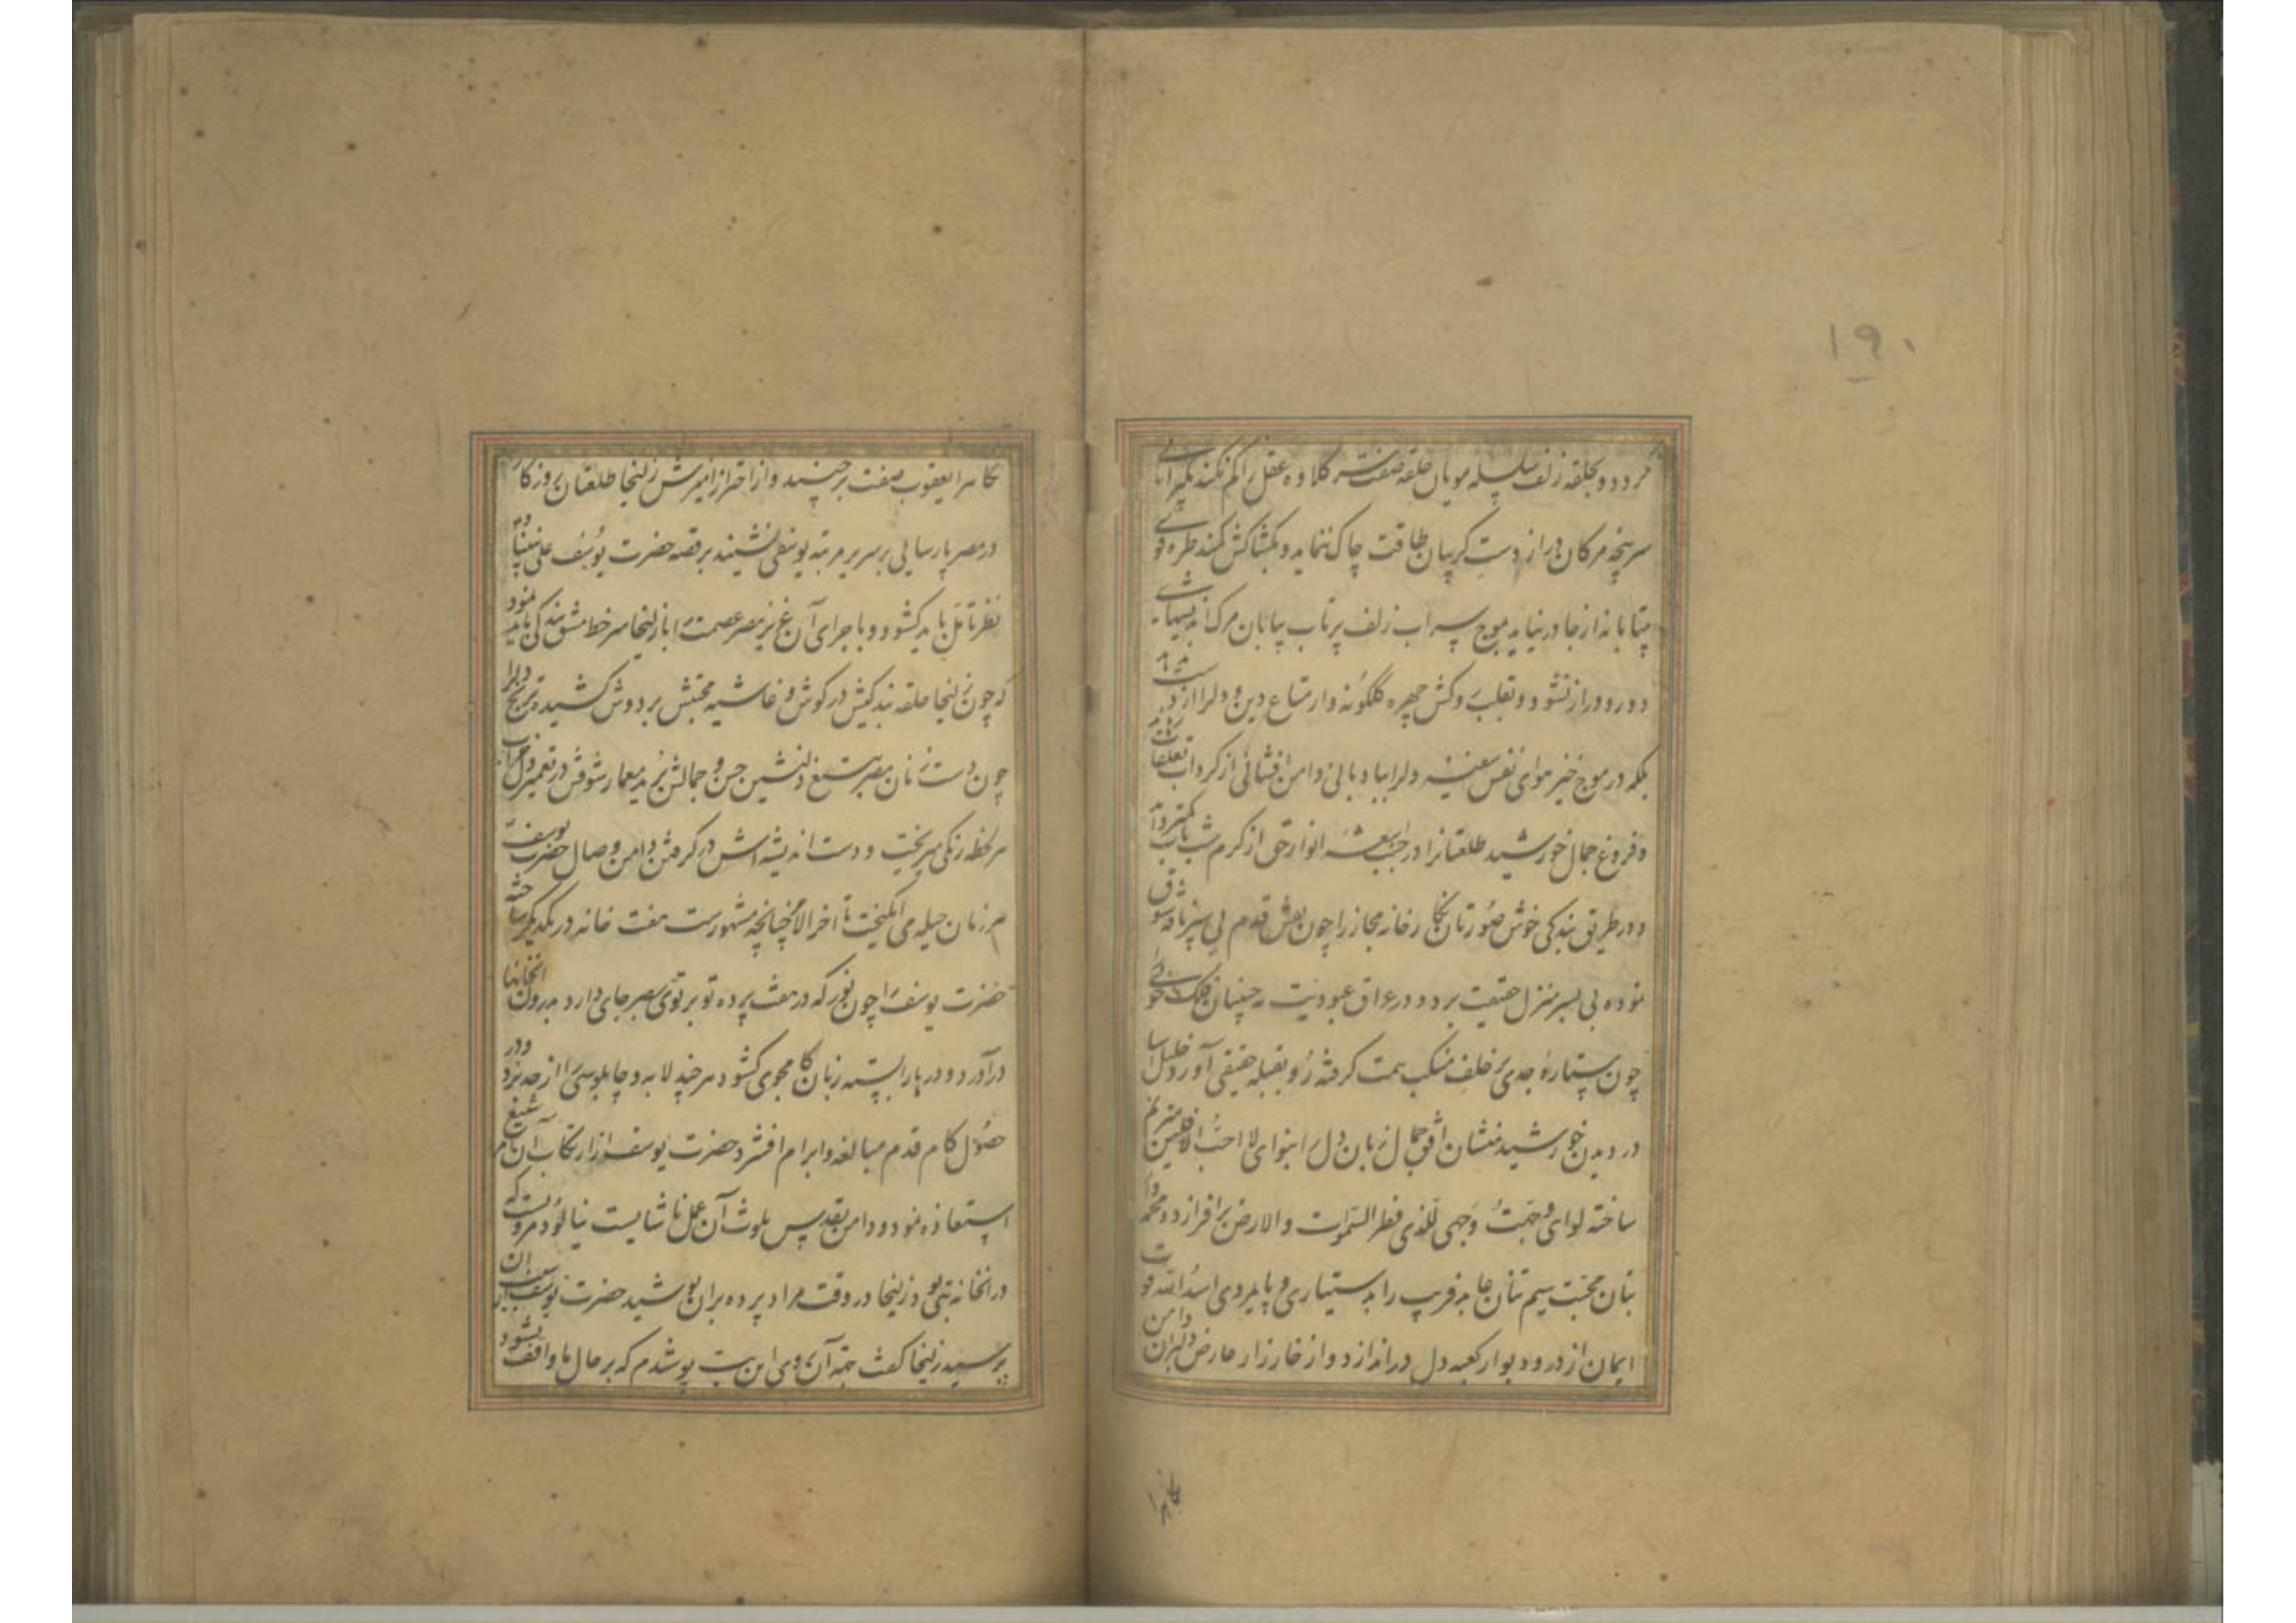 ۱۹۰
نرود و بحلقه زلف سلسله مویان حلقه صفت سر کلاوه عقل را کم نکند بگیرائی
سرپنجه مژکان دراز دست کریبان طاقت چاک ننماید و بکشاکش کمند طره
بیتابانه از جا در نیاید بموج سراب زلف پرتاب بیابان مرک
دور و دراز نشود و بقلب روکش چهره گلگونه وار متاع دین و دل را از دست
بلکه در موج خیز هوای نفس سفینه دل را ببادبانی دامن افشانی از کرداب تعلقات
و فروغ جمال خورشید طلعتانرا در جنب اشعه انوار حق از کرم شب تاب کمتر داند
و در طریق بندکی خوش صورتان نکارخانه مجاز را چون نقش قدم پی سپر بادیه شوق
نموده پی بسر منزل حقیقت برد و در عراق عبودیت
چون ستاره جدی بر خلف منکب همت کرفته رو بقبله حقیقی آورد خلیل آسا
در دیدن خورشید منشان افق جمال زبان دل را بنوای لا احب الافلین مترنم
ساخته لوای وجهت وجهی للذی فطر السموات والارض برافرازد و محمد وار
بتان محبت سیم تنان عابد فریب را بدستیاری و پایمردی اسد الله قوت
ایمان از در و دیوار کعبه دل در اندازد و از خارزار عارض دلبران دامن
نکاه را
نکاه را یعقوب صفت برچیند و از احتراز آمیزش زلیخا طلعتان روزکار
در مصر پارسایی بر سریر مرتبه یوسفی نشیند بر قصه حضرت یوسف علی نبینا و
نظر تامل باید کشود و با جرای آن عزیز مصر عصمت را با زلیخا سرخط مشق بندکی باید نمود
که چون زلیخا حلقه بندکیش در کوش و غاشیه محبتش بر دوش کشید ترنج دلرا
چون دست زنان مصر بتیغ دلنشین حسن و جمالش برید معمار شوقش در تعمیر دل خراب
هر لحظه رنکی میریخت و دست اندیشه اش در کرفتن دامن وصال حضرت یوسف
هر زمان حیله می انکیخت تا اخر الامر چنانچه مشهورست هفت خانه در یکدیکر ساخته
حضرت یوسف را چون نور که در هفت پرده تو بر توی بصر جای دارد بدرون آنخانها
درآورد و درها را بسته زبان کامجوی کشود هر چند لابه و چاپلوسی را از حد برد و در
حصول کام قدم مبالغه و ابرام افشرد حضرت یوسف از ارتکاب آن امر شنیع
استعاذه نمود و دامن تقدیس بلوث آن عمل ناشایست نیالود مرویست که
در آنخانه بتی بود زلیخا در وقت مراد پرده بران پوشید حضرت یوسف سبب آن
پرسید زلیخا کفت بجهة آن روی این بت پوشیدم که بر حال ما واقف نشود